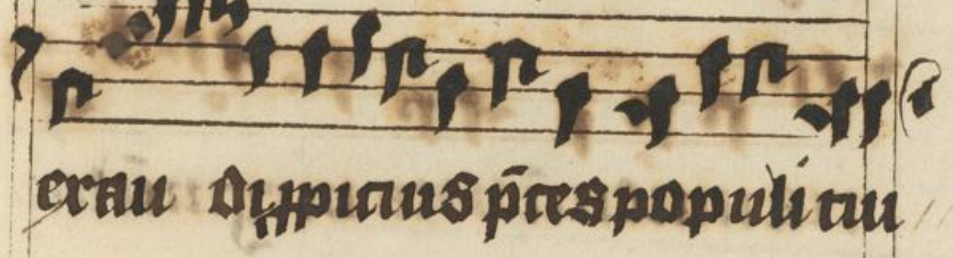 exau di ꝓpicius p̄ces populi tui